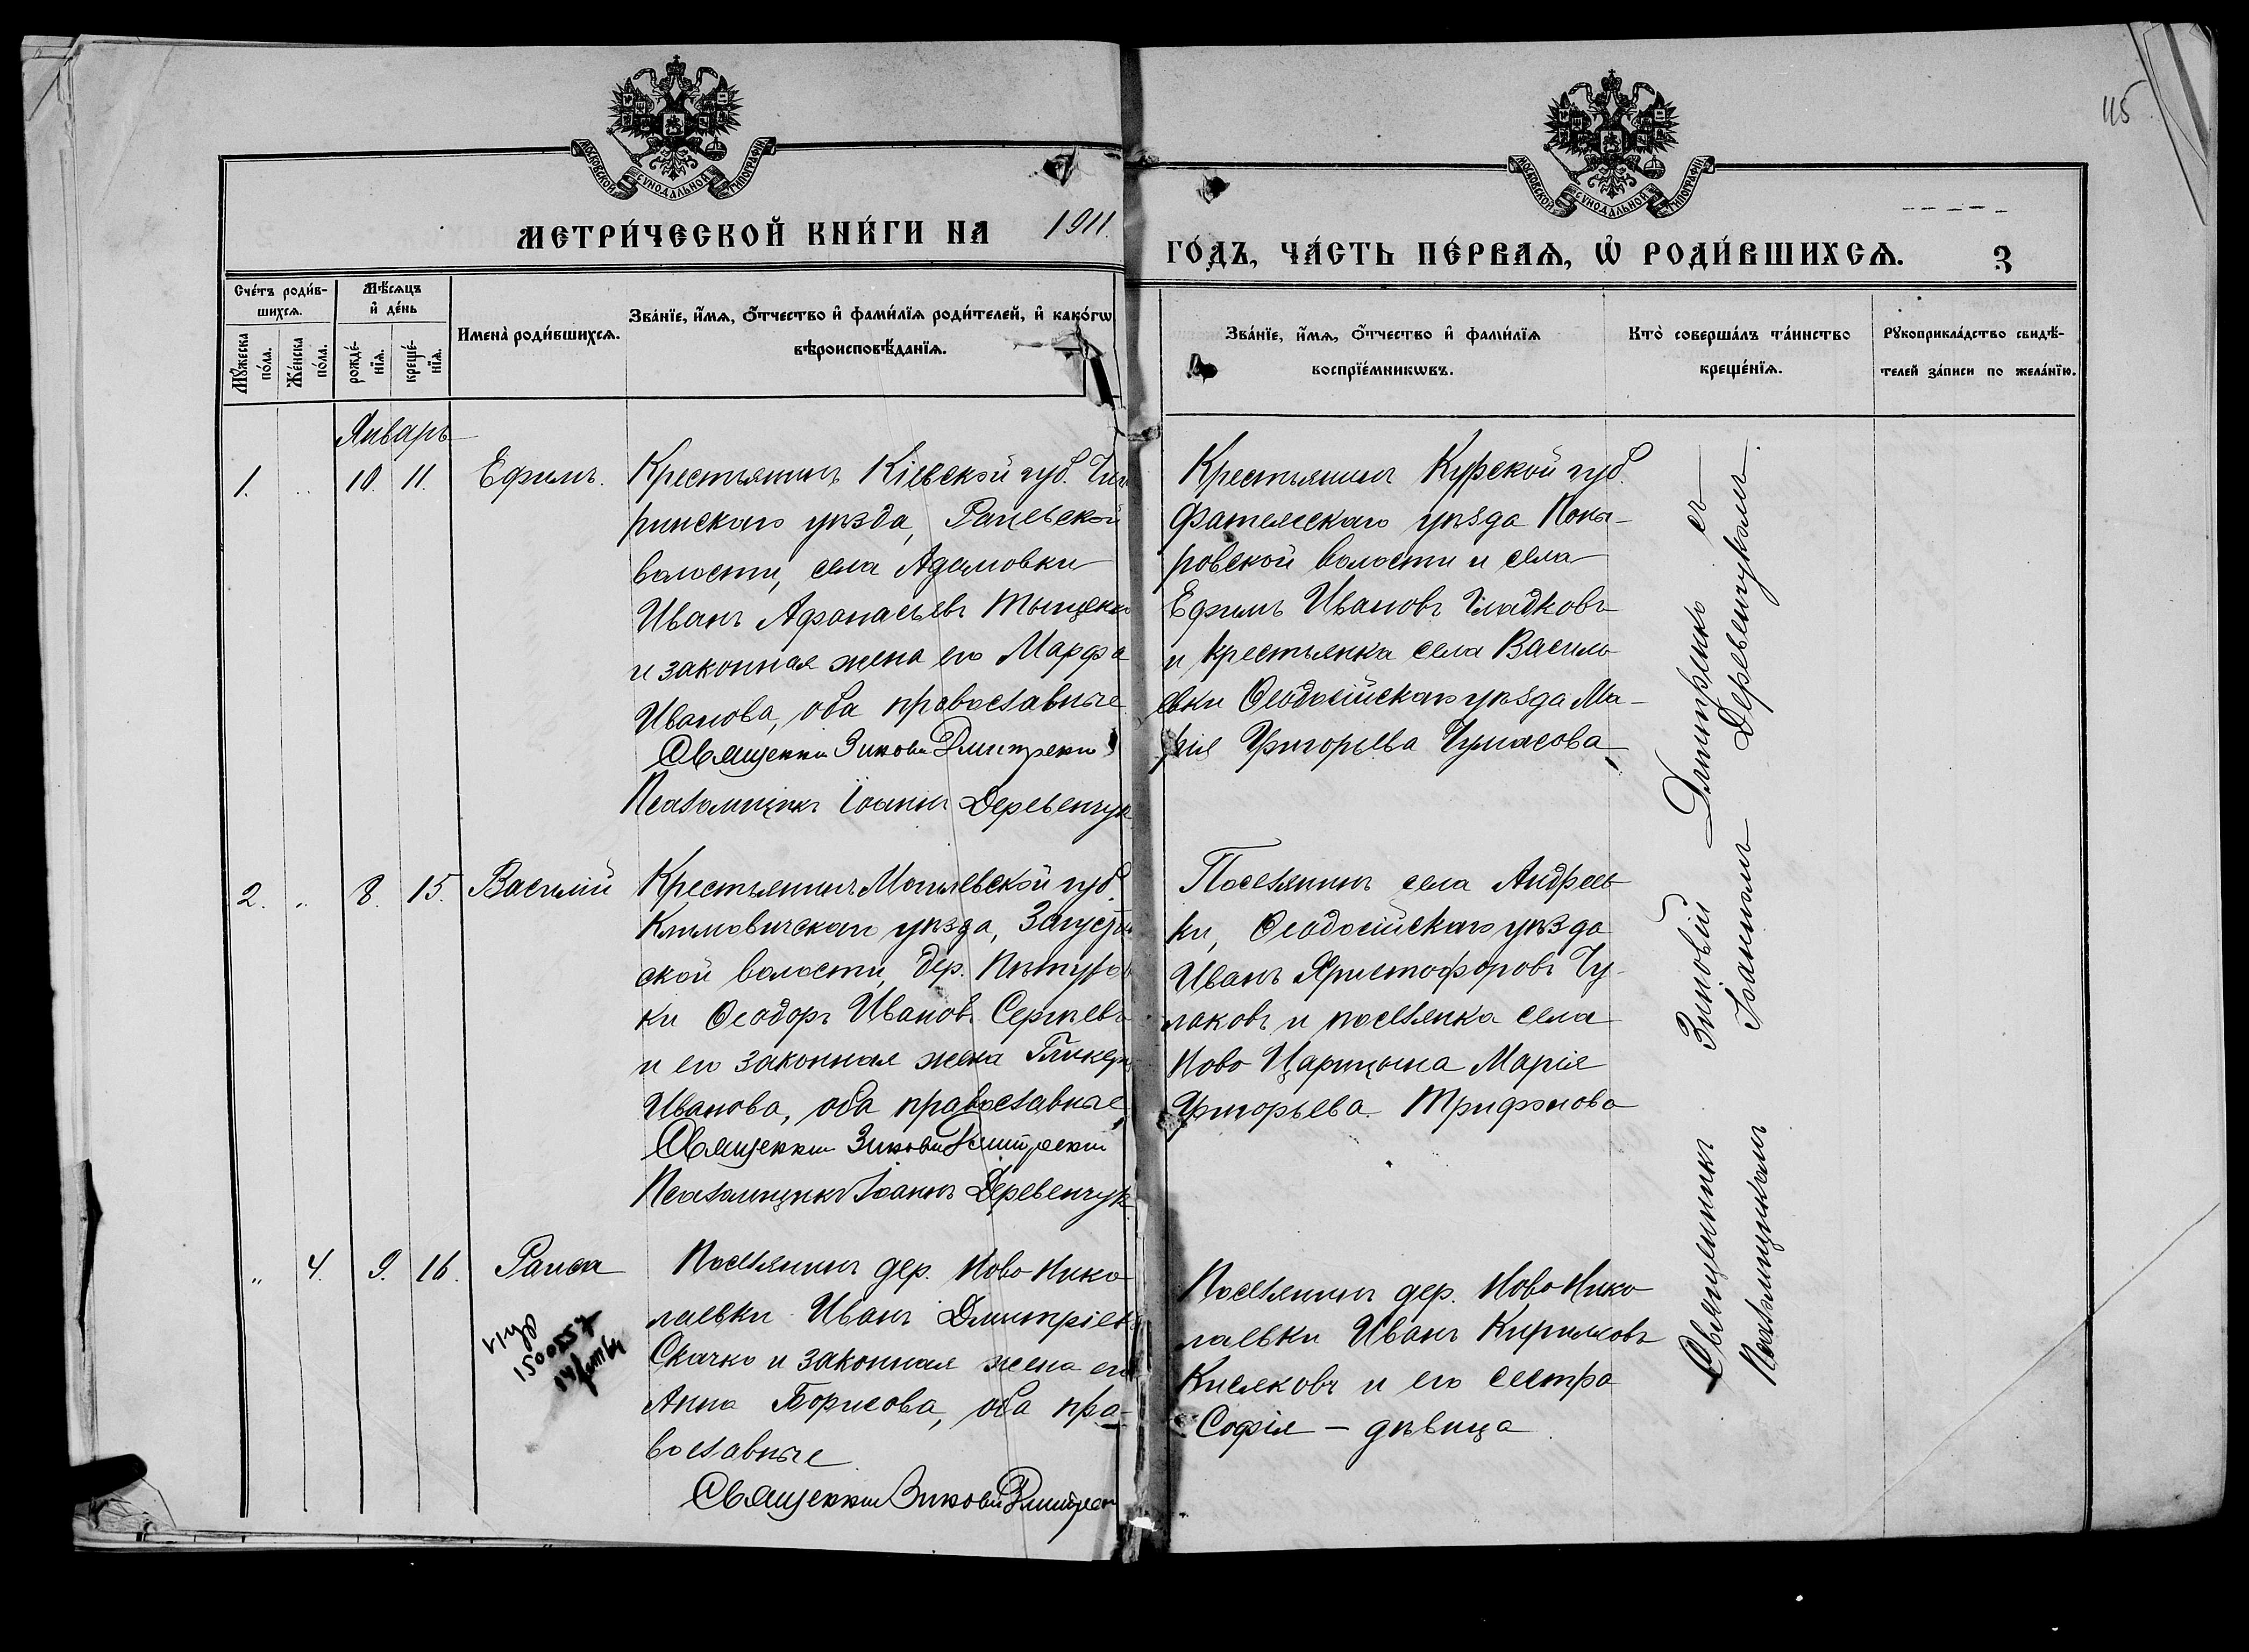 115
МОСКОВСКОЙ СѴНОДАЛЬНОЙ ТИПОГРАФІИ
МОСКОВСКОЙ СѴНОДАЛЬНОЙ ТИПОГРАФІИ
МЕТРИ́ЧЕСКОЙ КНИ́ГИ НА 1911 ГО́ДЪ, ЧА́СТЬ ПЕ́РВАѦ, Ѡ҆ РОДИ́ВШИХСѦ. 3
Счéтъ роди́в-
шихсѧ.
Мꙋ́жеска
по́ла.
Же́нска
по́ла.
Мѣ́сѧцъ
и҆ де́нь
рожде́-
нїѧ.
креще́-
нїѧ.
Имена̀ роди́вшихсѧ.
Зва́нїе, и҆́мѧ, ѻ҆́тчество и҆ фами́лїѧ роди́телей, и҆ како́гѡ
вѣроисповѣ́данїѧ.
Зва́нїе, и҆́мѧ, ѻ҆́тчество и҆ фами́лїѧ
воспрїе́мникѡвъ.
Кто̀ соверша́лъ та́инство
креще́нїѧ.
Рꙋкоприкла́дство свидѣ́-
телей за́писи по жела́нїю.
Январь
1. " 10. 11. Ефимъ.
Крестьянинъ Кіевской губ. Чиги
ринскаго уѣзда, Рацевской
волости, села Адамовки
Иванъ Афанасьевъ Тыщенко
и законная жена его Марфа
Иванова, оба православные.
Священник Зиновий Дмитренко
Псаломщикъ Іоаннъ Деревенчук
Крестьянинъ Курской губ.
Фатежскаго уѣзда Пока-
ровской волости и села
Ефимъ Ивановъ Гладковъ
и крестьянка села Василь
евки Ѳеодосійскаго уѣзда Ма-
рія Григорьева Чумасова
2. " 8. 15. Василий
Крестьянинъ Могилевской губ.
Климовичскаго уѣзда,
ской волости, дер.
ки Ѳеодоръ Ивановъ Сергѣевъ
и его законная жена Гликерія
Иванова, оба православные,
Священник Зиновий Дмитренко
Псаломщикъ Іоаннъ Деревенчук
Поселянинъ села Андреев
ки, Ѳеодосійскаго уѣзда
Иванъ Христофоровъ Чу-
лаковъ и поселянка села
Ново Царицына Марія
Григорьева Трифонова
" 4. 9. 16. Раиса
Поселянинъ дер. Ново Нико
лаевки Иванъ Дмитріевъ
Скачко и законная жена его
Анна Борисова, оба пра-
вославные
Священник Зиновий Дмитренко
1500557
Поселянинъ дер. Ново Нико
лаевки Иванъ Кириловъ
Кисляковъ и его сестра
Софія – дѣвица.
Священникъ Зиновій Дмитренко съ
Псаломщикомъ Іоанномъ Деревенчукомъ